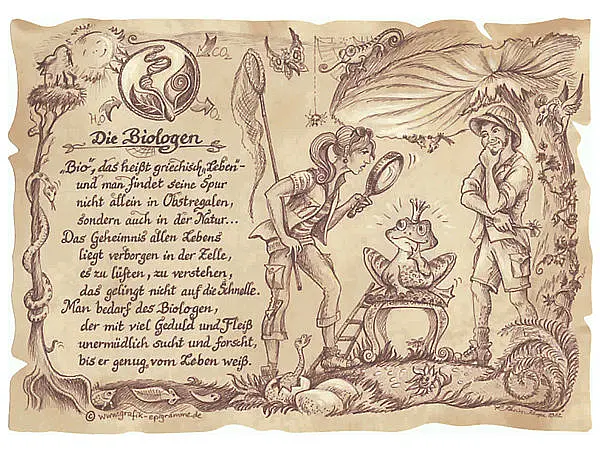 CO₂
H₂O
O₂
Die Biologen
„Bio“, das heißt griechisch „Leben“ -
und man findet seine Spur
nicht allein in Obstregalen,
sondern auch in der Natur...
Das Geheimnis allen Lebens
liegt verborgen in der Zelle,
es zu lüften, zu verstehen,
das gelingt nicht auf die Schnelle.
Man bedarf des Biologen,
der mit viel Geduld und Fleiß
unermüdlich sucht und forscht,
bis er genug vom Leben weiß.
© www.grafik-epigramme.de